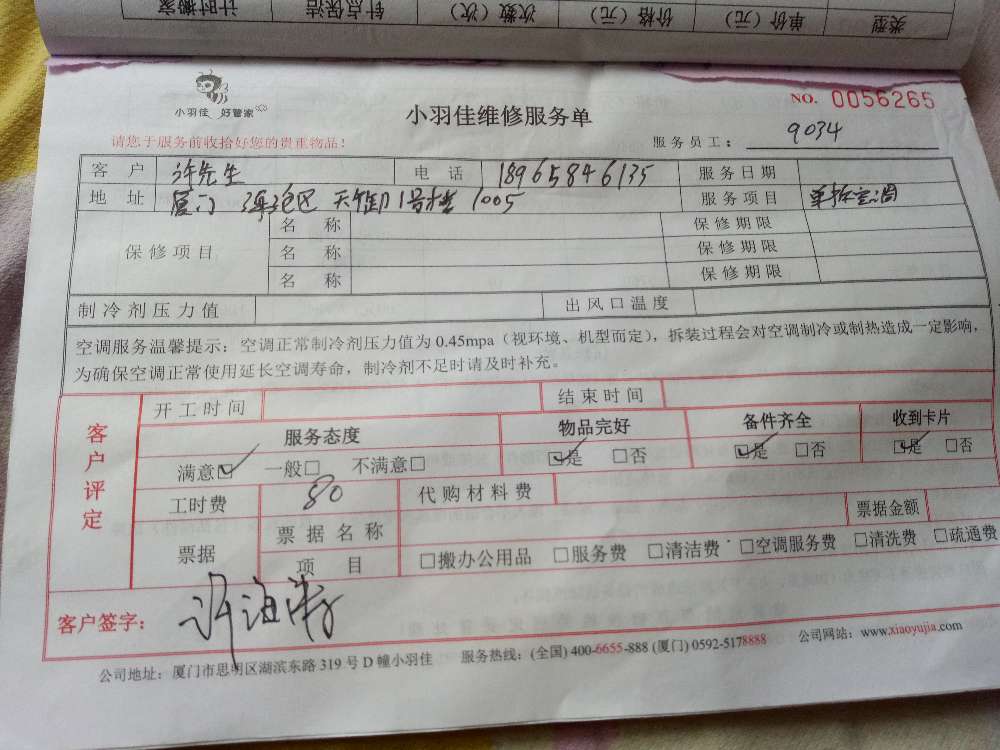 类型 单价（元） 价格（元） 次数（次） 针点保洁 计时搬家
小羽佳 好管家
小羽佳维修服务单
NO. 0056265
请您于服务前收拾好您的贵重物品！
服务员工： 9034
客户 许先生 电话 18965846135 服务日期
地址 厦门 海沧区 天御1号楼 1005 服务项目 单拆空调
保修项目 名称 保修期限
名称 保修期限
名称 保修期限
制冷剂压力值 出风口温度
空调服务温馨提示：空调正常制冷剂压力值为 0.45mpa（视环境、机型而定），拆装过程会对空调制冷或制热造成一定影响，
为确保空调正常使用延长空调寿命，制冷剂不足时请及时补充。
客户评定
开工时间 结束时间
服务态度 物品完好 备件齐全 收到卡片
满意☑ 一般□ 不满意□ ☑是 □否 ☑是 □否 ☑是 □否
工时费 80 代购材料费
票据 票据名称 票据金额
项目 □搬办公用品 □服务费 □清洁费 □空调服务费 □清洗费 □疏通费
客户签字： 许
公司地址：厦门市思明区湖滨东路 319 号 D 幢小羽佳 服务热线：(全国) 400-6655-888 (厦门) 0592-5178888 公司网站：www.xiaoyujia.com